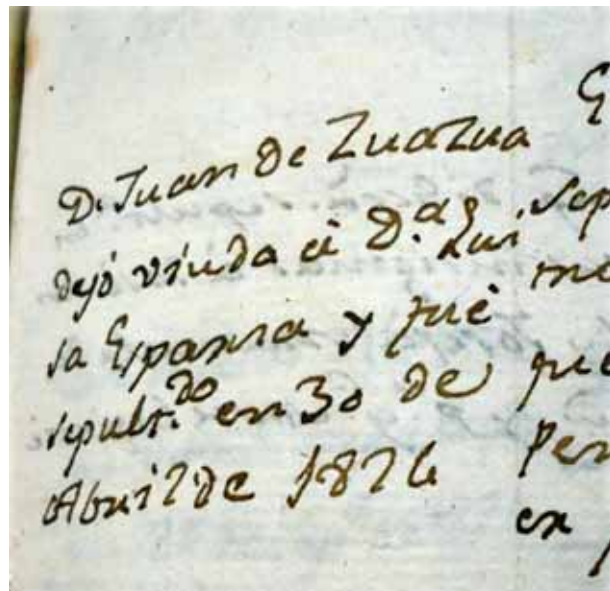 D. Juan de Zuazua
dejó viuda á D.ª Lui
sa Espanza y fué
sepult.do en 30 de
Abril de 1826
en